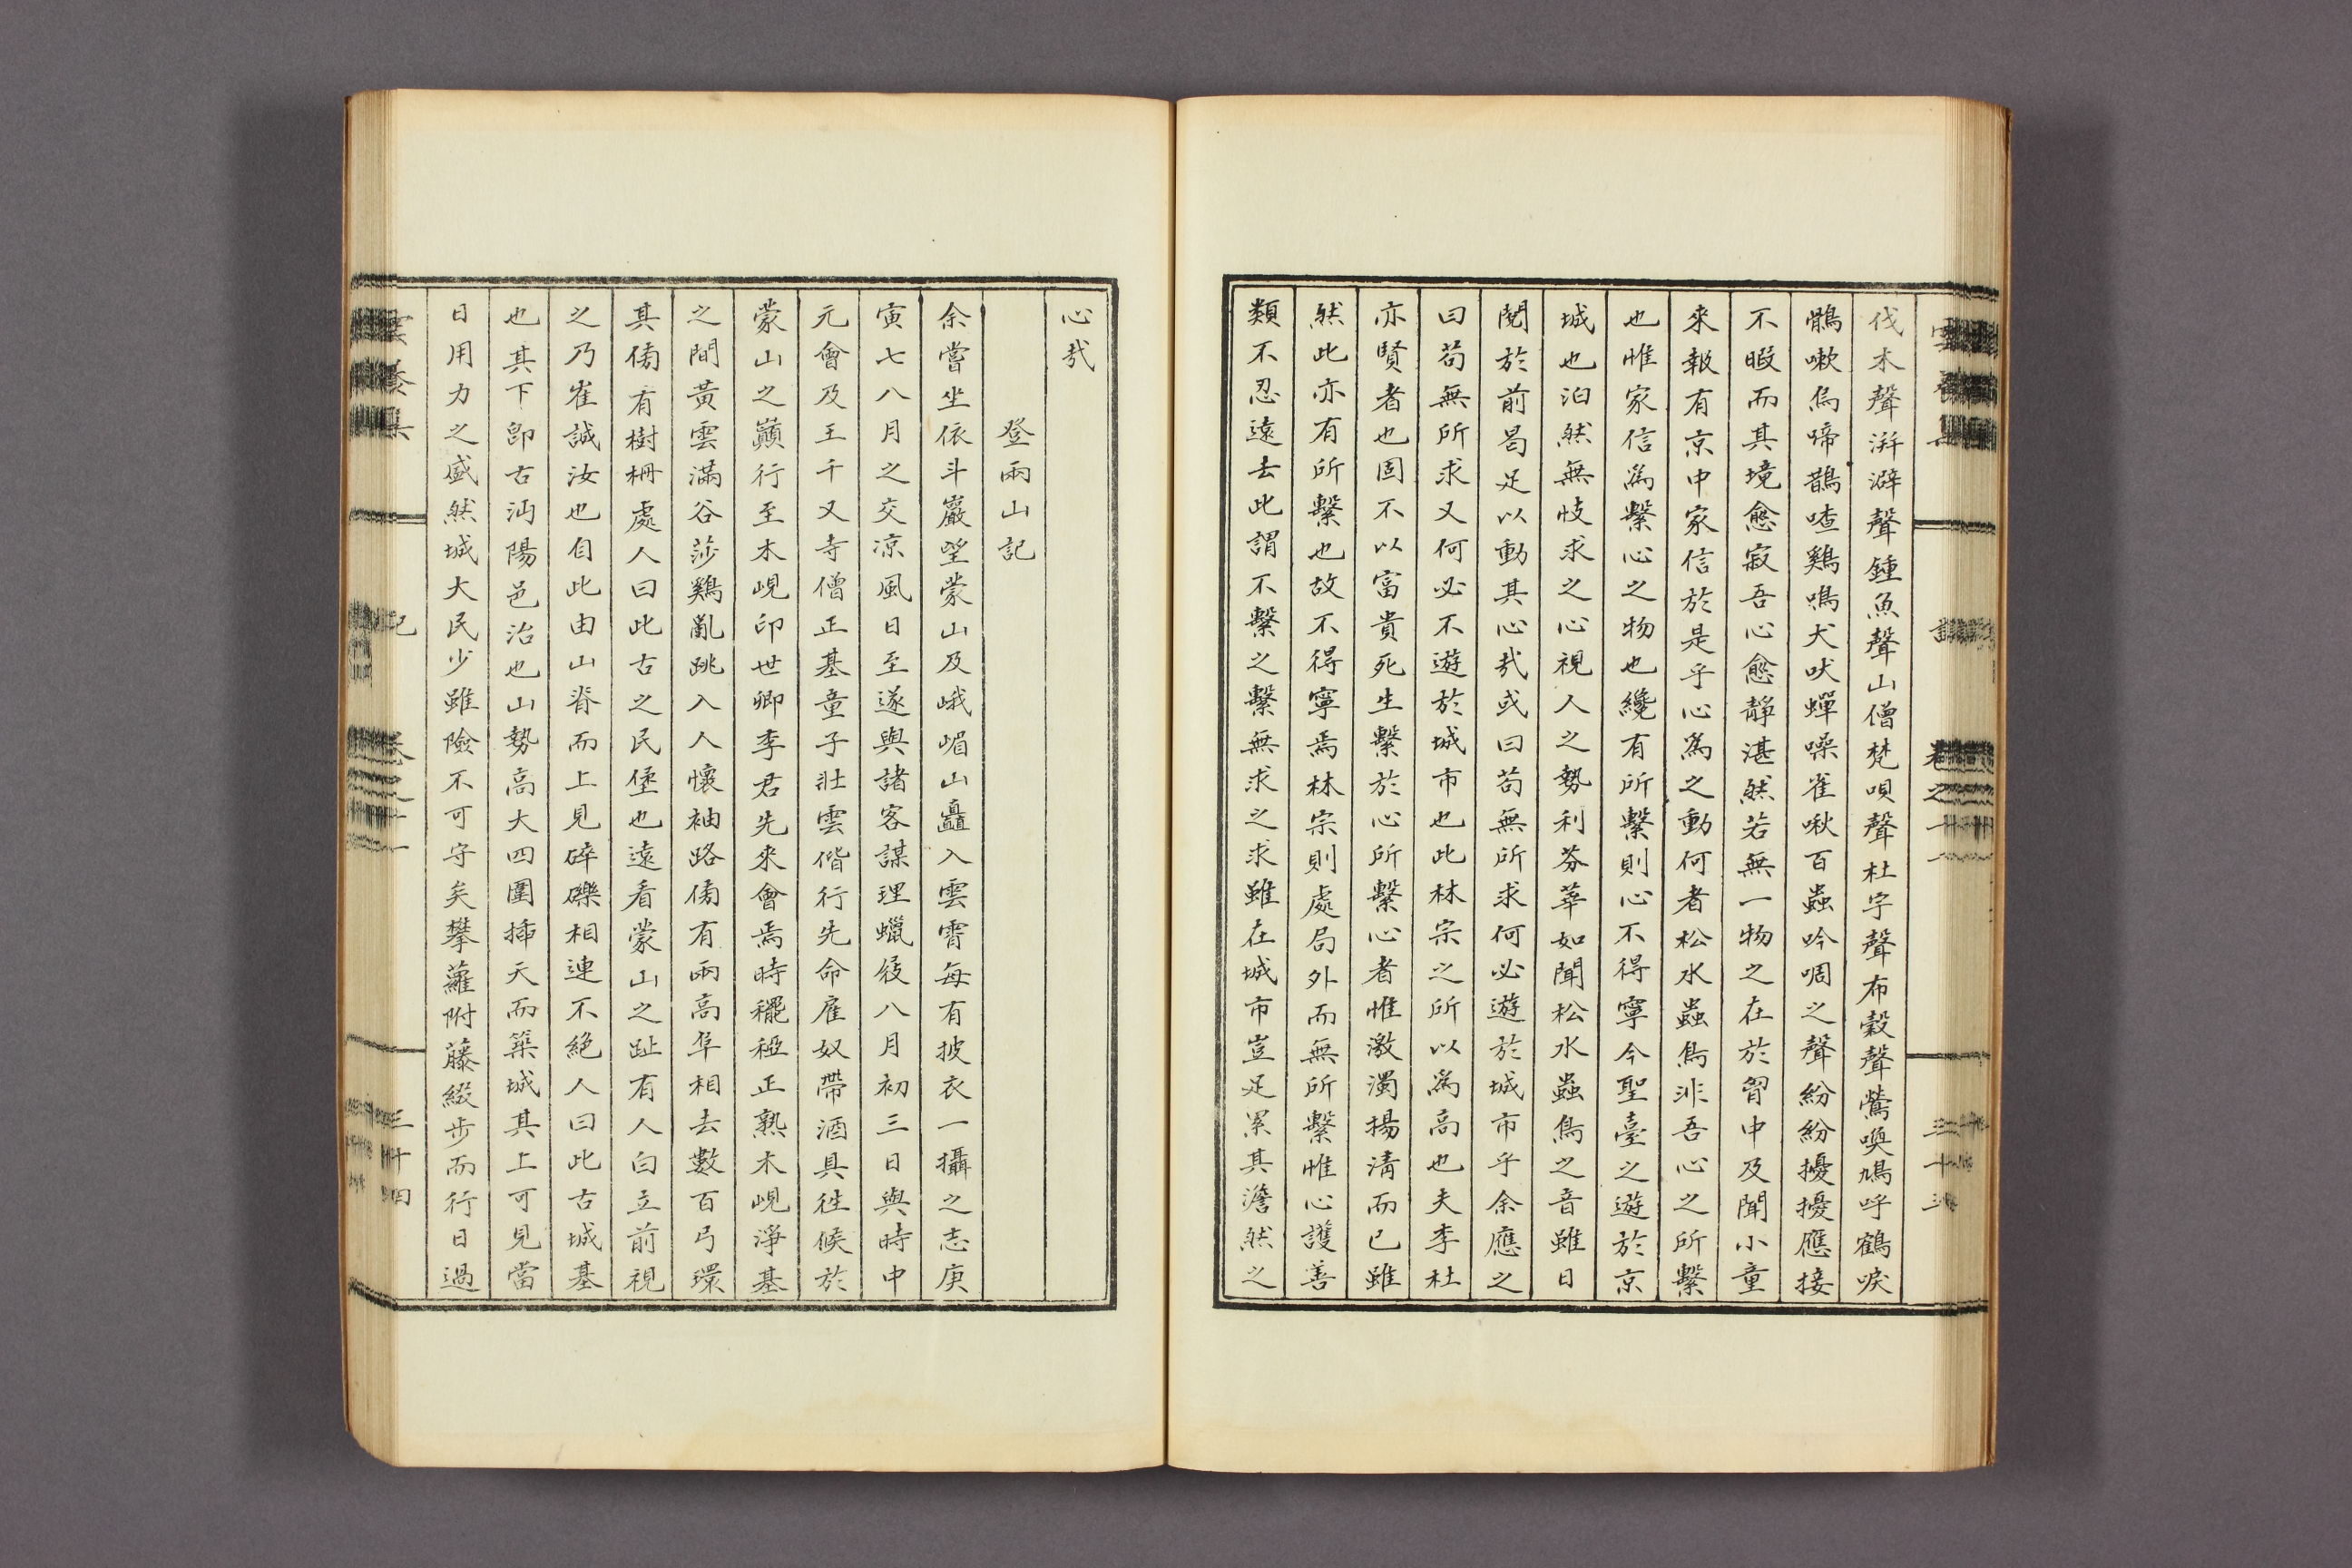 伐木聲洴澼聲鍾魚聲山僧梵唄聲杜宇聲布穀聲鶯喚鳩呼鶴唳
鶻嗽烏啼鵲喳鷄鳴犬吠蟬噪雀啾百蟲吟啁之聲紛紛擾擾應接
不暇而其境愈寂吾心愈靜湛然若無一物之在於胷中及聞小童
來報有京中家信於是乎心爲之動何者松水蟲鳥非吾心之所繫
也惟家信爲繫心之物也纔有所繫則心不得寧今聖臺之遊於京
城也泊然無忮求之心視人之勢利芬華如聞松水蟲鳥之音雖日
閱於前曷足以動其心㢤或曰苟無所求何必遊於城市乎余應之
曰苟無所求又何必不遊於城市也此林宗之所以爲高也夫李杜
亦賢者也固不以富貴死生繫於心所繫心者惟激濁揚淸而已雖
然此亦有所繫也故不得寧焉林宗則處局外而無所繫惟心護善
類不忍遠去此謂不繫之繫無求之求雖在城市豈足累其澹然之
卷之十一
心㢤
登兩山記
余嘗坐依斗巖望蒙山及峨嵋山矗入雲霄每有披衣一攝之志庚
寅七八月之交凉風日至遂與諸客謀理蠟屐八月初三日與時中
元會及王千又寺僧正基童子壯雲偕行先命雇奴帶酒具徃候於
蒙山之巓行至木峴印世卿李君先來會焉時䆉稏正熟木峴淨基
之間黃雲滿谷莎鷄亂跳入人懷袖路傍有兩高阜相去數百弓環
其傍有樹柵處人曰此古之民堡也遠看蒙山之趾有人白立前視
之乃崔誠汝也自此由山脊而上見碎礫相連不絶人曰此古城基
也其下卽古沔陽邑治也山勢高大四圍揷天而築城其上可見當
日用力之盛然城大民少雖險不可守矣攀蘿附藤綴步而行日過
集
記
卷之十一
三十四